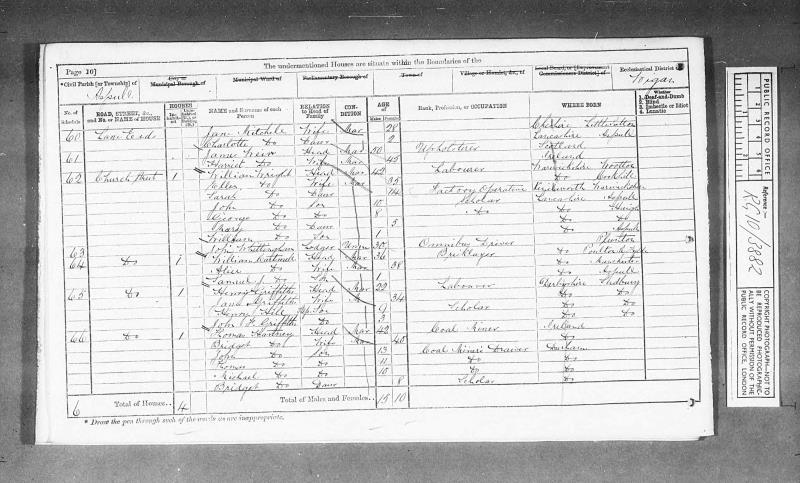 The undermentioned Houses are situate within the Boundaries of the
Page 10]
Civil Parish [or Township] of
Aspull
City or Municipal Borough of
Municipal Ward of
Parliamentary Borough of
Town of
Village or Hamlet, &c., of
Local Board, or [Improvement Commissioners District] of
Ecclesiastical District of
Wigan
No. of Schedule
ROAD, STREET, &c., and No. or NAME of HOUSE
HOUSES
NAME and Surname of each Person
RELATION to Head of Family
CONDITION
AGE of
Males
Females
Rank, Profession, or OCCUPATION
WHERE BORN
Whether
1. Deaf-and-Dumb
2. Blind
3. Imbecile or Idiot
4. Lunatic
60 Lane Ends Jane Mitchele Wife Mar 28 Cheshire
Charlotte Do Daur 2 Lancashire Aspull
61 James Weir Head Mar 50 Upholsterer Scotland
Harriet Do Wife Mar 45 Ireland
62 Church Street 1 William Wright Head Mar 42 Labourer Warwickshire Wootton
Ellen Do Wife Mar 35 Do
Sarah Do Daur 14 Factory Operative Warwickshire
John Do Son 10 Scholar Lancashire Aspull
George Do Do 8 Do Do Haigh
Mary Do Daur 5 Do Do
William Do Son 1 Do Aspull
63 John Whittingham Lodger Unm 30 Omnibus Driver
64 Do 1 William Head Mar 36 Bricklayer Do
Alice Do Wife Mar 38 Do Manchester
Samuel Do Son 1 Do Aspull
65 Do 1 Henry Griffiths Head Mar 22 Labourer Derbyshire Sudbury
Jane Griffiths Wife 34 Do Do
Henry Hill 9 Scholar Do Do
John Griffiths Do 3 Do Do
66 Do 1 Thomas Head Mar 42 Coal Miner Ireland
Bridget Do Wife Mar 40 Do
John Do Son 13 Coal Miner Drawer Durham
Thomas Do Do 11 Do Do
Michael Do Do 10 Do Do
Bridget Do Daur 8 Scholar Do
6 Total of Houses.. 4 Total of Males and Females.. 15 10
* Draw the pen through such of the words as are inappropriate.
PUBLIC RECORD OFFICE
Reference :-
RG 10/3882
COPYRIGHT PHOTOGRAPH—NOT TO BE REPRODUCED PHOTOGRAPHICALLY WITHOUT PERMISSION OF THE PUBLIC RECORD OFFICE, LONDON